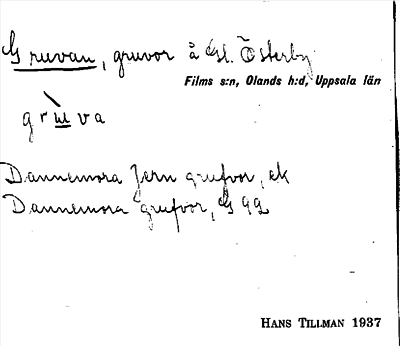 Gruvan, gruvor å Gl. Österby
Films s:n, Olands h:d, Uppsala län
gruva
Dannemora Jern grufvor, ek
Dannemora grufvor, G 92
HANS TILLMAN 1937